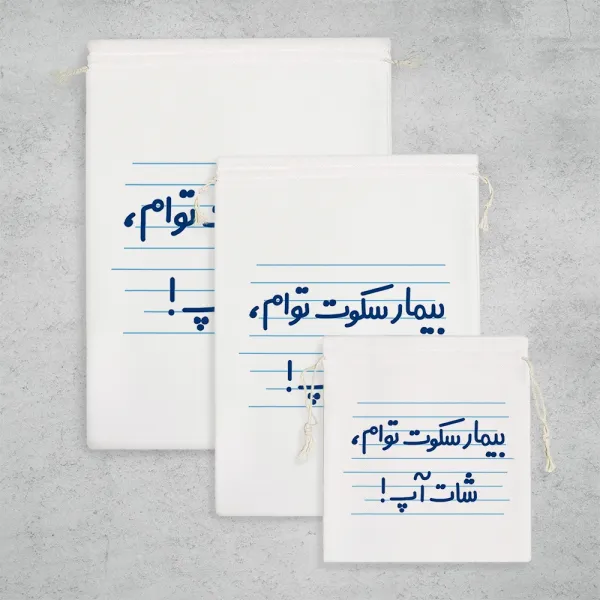 توام،
پ!
بیمار سکوت توام،
پ!
بیمار سکوت توام،
شات آپ!